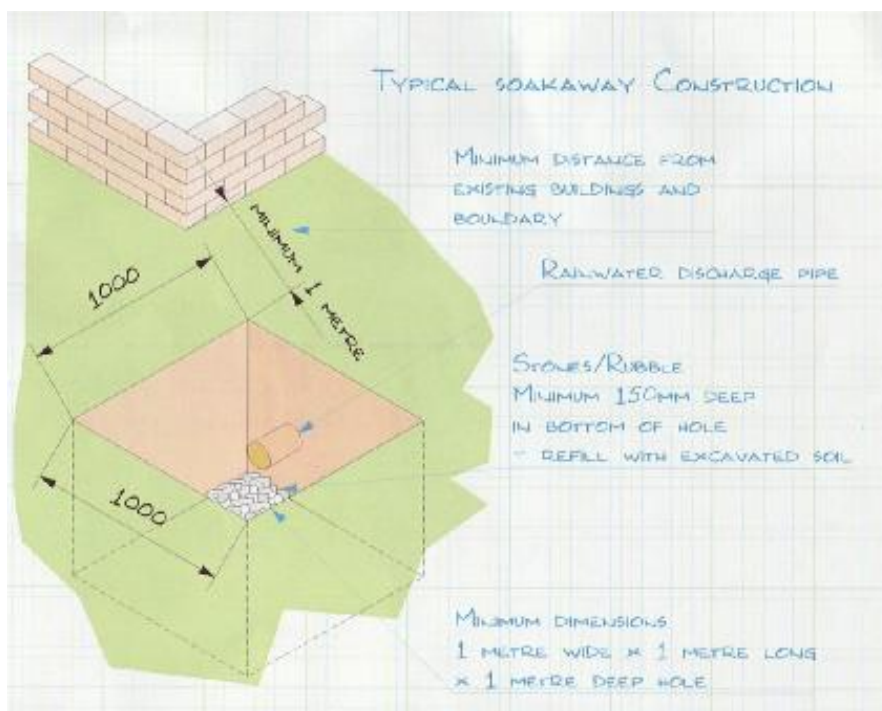 TYPICAL SOAKAWAY CONSTRUCTION
MINIMUM DISTANCE FROM
EXISTING BUILDINGS AND
BOUNDARY
MINIMUM 1 METRE
1000
RAINWATER DISCHARGE PIPE
STONES/RUBBLE
MINIMUM 150MM DEEP
IN BOTTOM OF HOLE
- REFILL WITH EXCAVATED SOIL
1000
MINIMUM DIMENSIONS
1 METRE WIDE x 1 METRE LONG
x 1 METRE DEEP HOLE